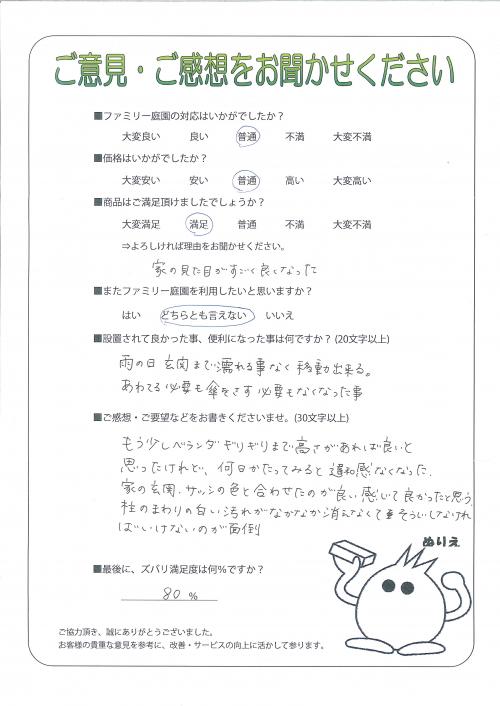 ご意見・ご感想をお聞かせください
■ファミリー庭園の対応はいかがでしたか？
大変良い 良い 普通 不満 大変不満
■価格はいかがでしたか？
大変安い 安い 普通 高い 大変高い
■商品はご満足頂けましたでしょうか？
大変満足 満足 普通 不満 大変不満
⇒よろしければ理由をお聞かせください。
家の見た目がすごく良くなった
■またファミリー庭園を利用したいと思いますか？
はい どちらとも言えない いいえ
■設置されて良かった事、便利になった事は何ですか？(20文字以上)
雨の日 玄関まで濡れる事なく移動出来る。
あわてる必要も傘をさす必要もなくなった事
■ご感想・ご要望などをお書きくださいませ。(30文字以上)
もう少しベランダギリギリまで高さがあれば良いと
思ったけれど、何日かたってみると違和感なくなった。
家の玄関、サッシの色と合わせたのが良い感じで良かったと思う。
柱のまわりの白い汚れがなかなか消えなくて そうじしなけれ
ばいけないのが面倒
ぬりえ
■最後に、ズバリ満足度は何％ですか？
80 %
ご協力頂き、誠にありがとうございました。
お客様の貴重な意見を参考に、改善・サービスの向上に活かして参ります。